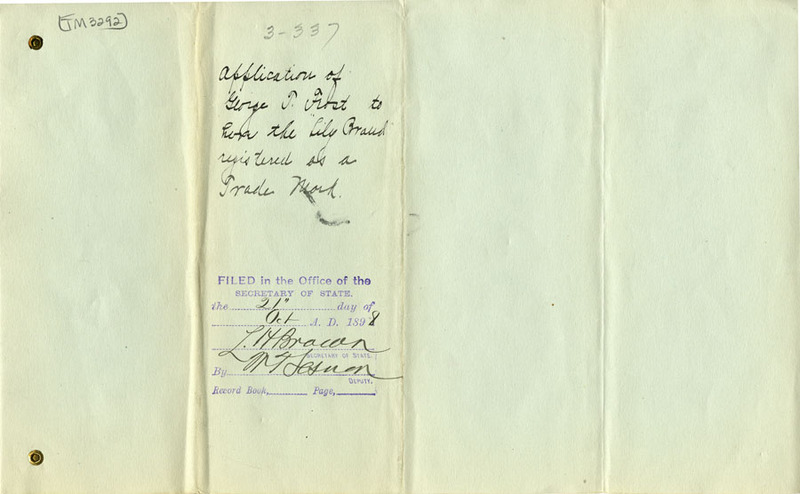 TM3292
3-337
Application of
George T. Frost to
have the "Lily Brand"
registered as a
Trade Mark.
FILED in the Office of the
SECRETARY OF STATE.
the 21" day of
Oct A. D. 1898
L. H. Brown
SECRETARY OF STATE.
By
DEPUTY.
Record Book, Page,